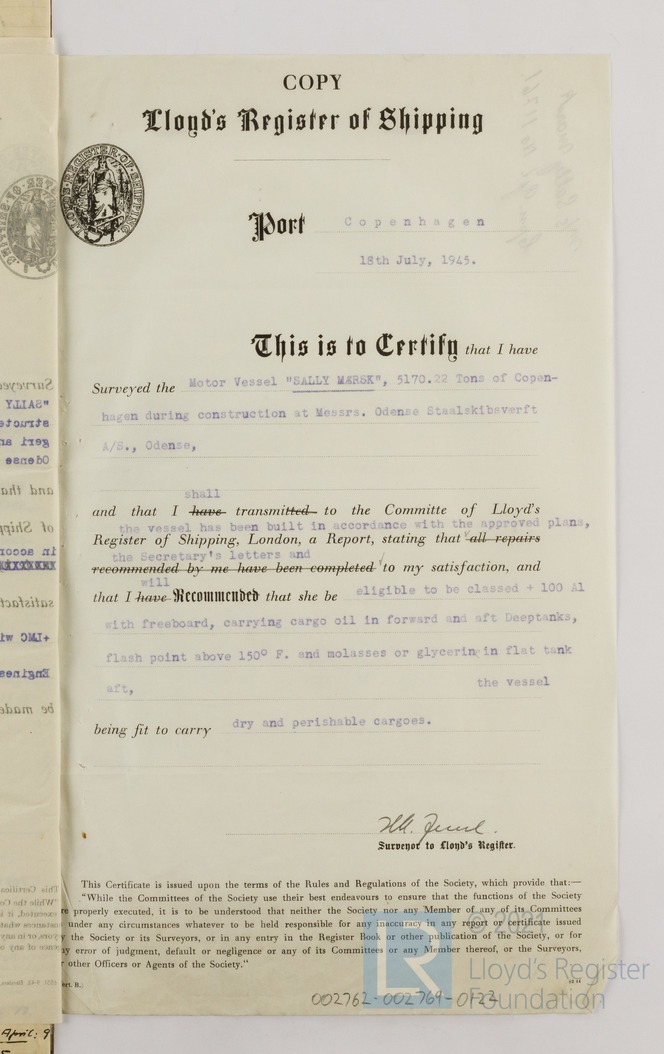 COPY
Lloyd's Register of Shipping
LLOYD'S REGISTER OF SHIPPING
Port Copenhagen
18th July, 1945.
This is to Certify that I have
Surveyed the Motor Vessel "SALLY MÆRSK", 5170.22 Tons of Copen-
hagen during construction at Messrs. Odense Staalskibsværft
A/S., Odense,
shall
and that I have transmitted to the Committe of Lloyd's
the vessel has been built in accordance with the approved plans,
Register of Shipping, London, a Report, stating that all repairs
the Secretary's letters and
recommended by me have been completed to my satisfaction, and
will
that I have Recommended that she be eligible to be classed + 100 A1
with freeboard, carrying cargo oil in forward and aft Deeptanks,
flash point above 150° F. and molasses or glycerin in flat tank
aft, the vessel
being fit to carry dry and perishable cargoes.
Surveyor to Lloyd's Register.
This Certificate is issued upon the terms of the Rules and Regulations of the Society, which provide that:—
"While the Committees of the Society use their best endeavours to ensure that the functions of the Society
re properly executed, it is to be understood that neither the Society nor any Member of any of its Committees
under any circumstances whatever to be held responsible for any inaccuracy in any report or certificate issued
y the Society or its Surveyors, or in any entry in the Register Book or other publication of the Society, or for
ay error of judgment, default or negligence or any of its Committees or any Member thereof, or the Surveyors,
r other Officers or Agents of the Society."
© 2021
LR
Lloyd's Register
Foundation
002762-002769-0122
April: 9